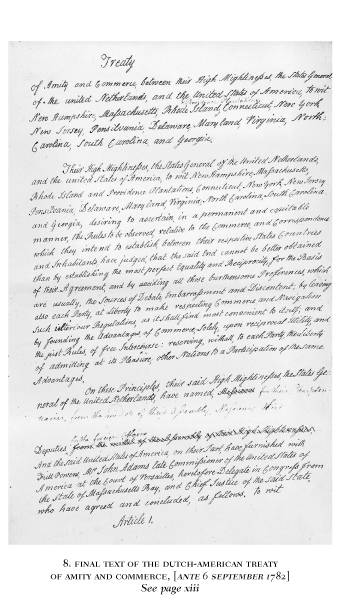 Treaty
of Amity and Commerce, between their High Mightinesses, the States General
of the united Netherlands, and the United States of America, to wit
New Hampshire, Massachusetts, Rhode Island, Connecticut, New York
New Jersey, Pensilvania, Delaware, Maryland, Virginia, North-
Carolina, South Carolina and Georgia.
Their High Mightinesses, the States General of the United Netherlands,
and the united States of America, to wit, New Hampshire, Massachusetts,
Rhode Island and Providence Plantations, Connecticut, New York, New Jersey
Pensilvania, Delaware, Maryland, Virginia, North Carolina, South Carolina
and Georgia, desiring to ascertain, in a permanent and equitable
manner, the Rules to be observed, relative to the Commerce and Correspondence
which they intend to establish between their respective States, Countries
and Inhabitants have judged, that the said End cannot be better obtained
than by establishing the most perfect Equality and Reciprocity, for the Basis
of their Agreement, and by avoiding all those burthensome Preferences, which
are usually, the Sources of Debate, Embarrassment and Discontent; by leaving
also each Party, at Liberty to make, respecting Commerce and Navigation
such interiour Regulations, as it shall find most convenient to itself; and
by founding the Advantages of Commerce, Solely, upon reciprocal Utility and
the just Rules of free Intercourse: reserving, withall, to each Party the Liberty
of admitting at its Pleasure, other Nations to a Participation of the same
Advantages.
On these Principles, their said High Mightinesses, the States Ge-
neral of the United Netherlands, have named,
Deputies from the midst of their Assembly
And the said United States of America, on their Part, have furnished with
Full Powers, Mr John Adams, late Commissioner of the United States of
America at the Court of Versailles, heretofore Delegate in Congress from
the State of Massachusetts Bay, and Chief Justice of the said State,
who have agreed and concluded, as follows, to wit
Article 1.
8. FINAL TEXT OF THE DUTCH-AMERICAN TREATY
OF AMITY AND COMMERCE, [ANTE 6 SEPTEMBER 1782]
See page xiii